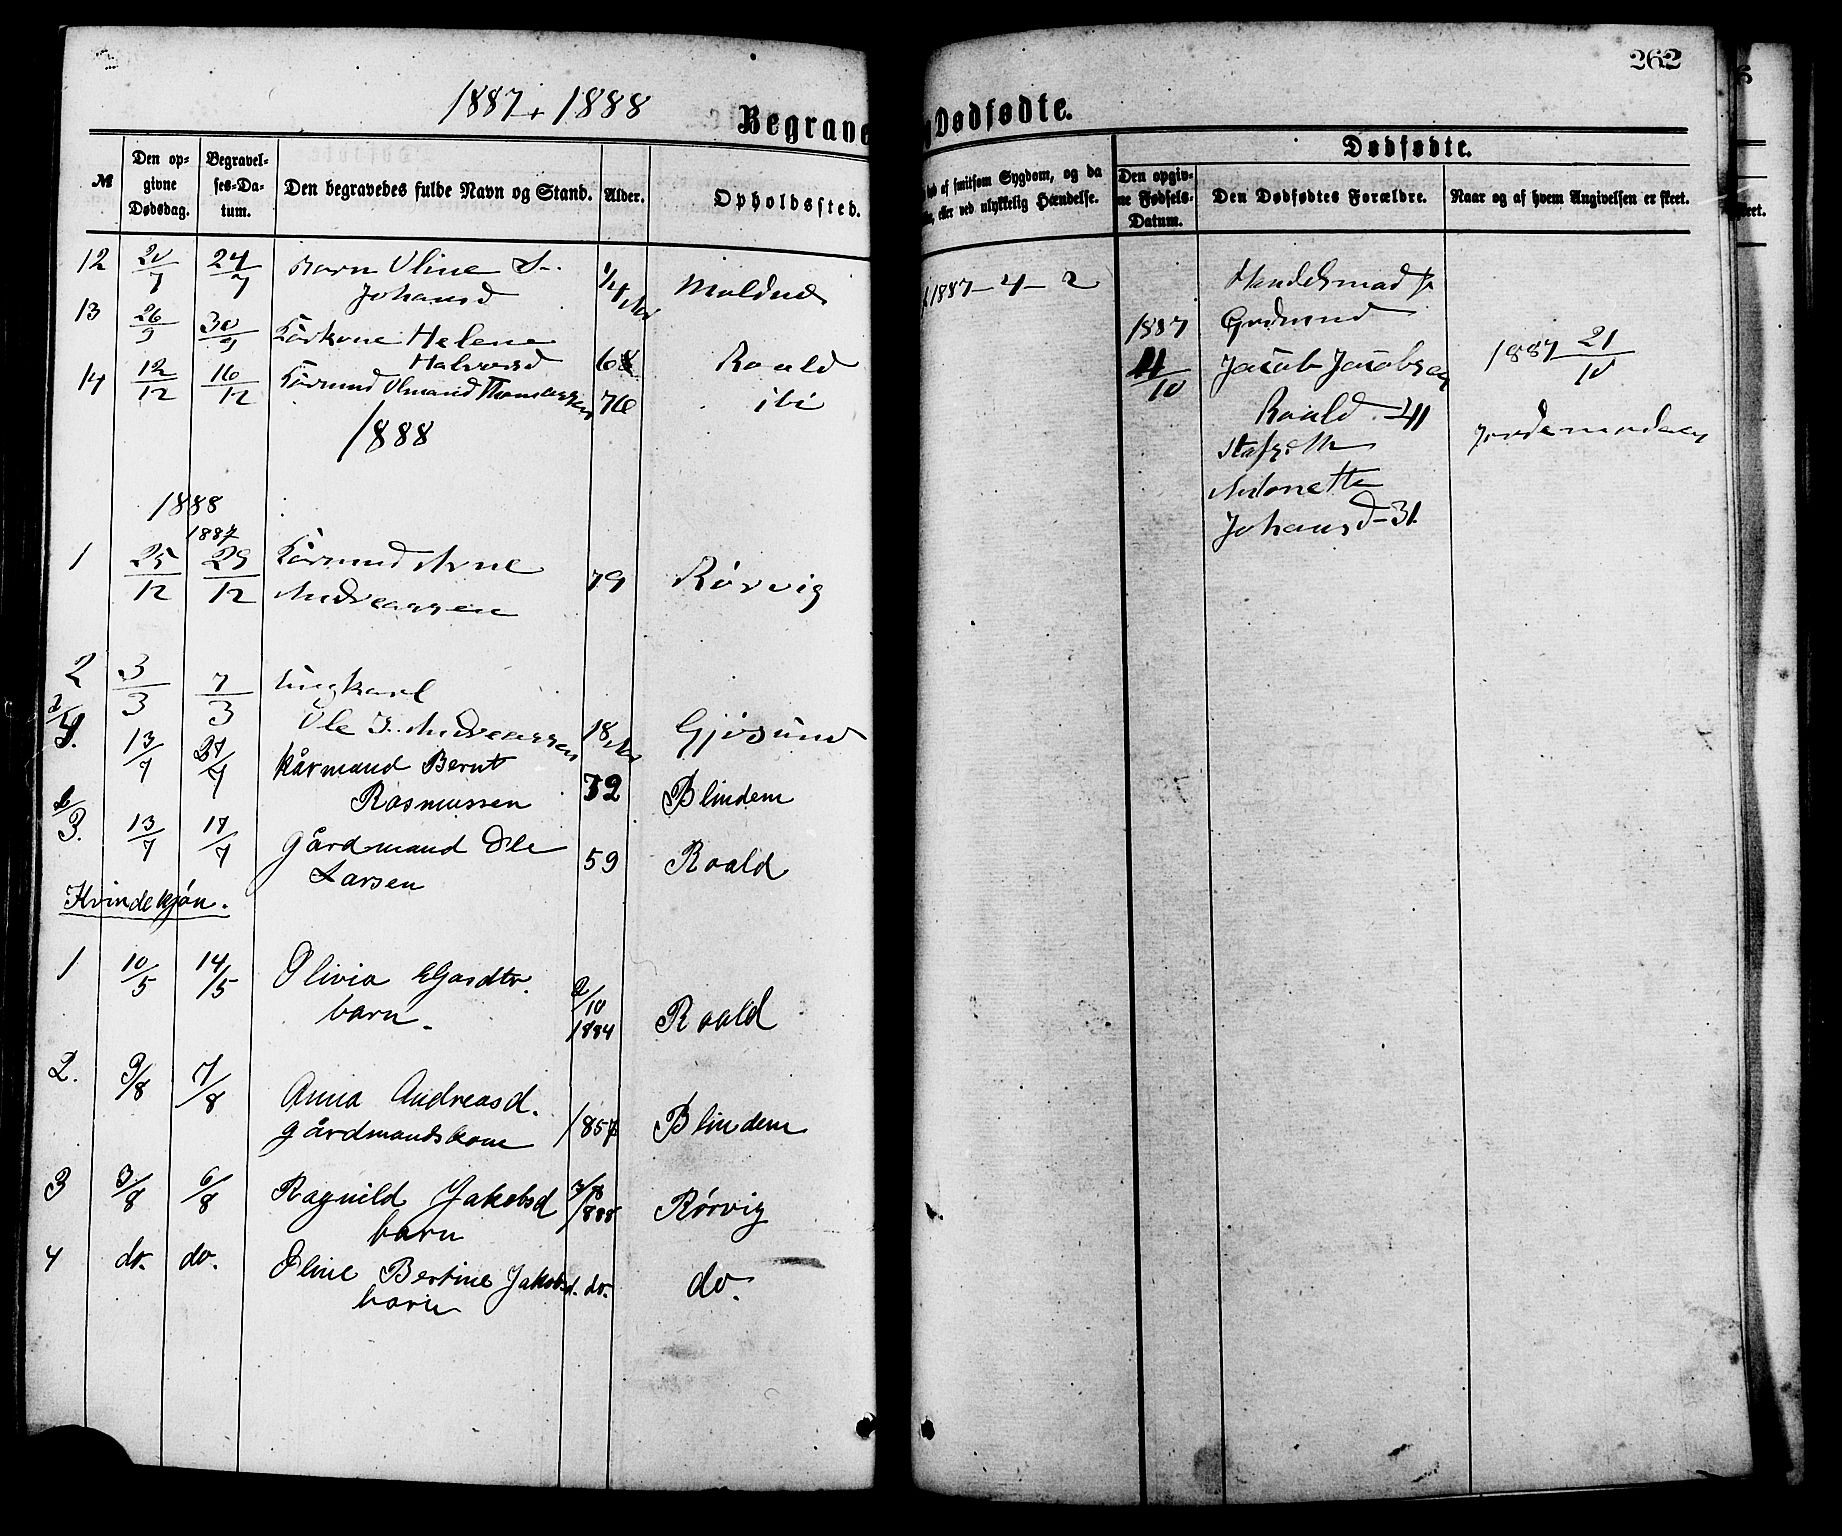 262
1887, 1888
Begrave
Dødfødte.
№
Den op-
givne
Dødsdag.
Begravel-
ses-Da-
tum.
Den begravedes fulde Navn og Stand.
Alder.
Opholdssted.
12 20/7 24/7 Barn Oline S.
Johansd 1/4 Moldnæs
13 26/9 30/9 Kårkone Helene
Halvorsd 68 Roald
14 12/12 16/12 Kårmand Olmand Thomassen 76 ibi
1888
1888
1887
1 25/12 29/12 Kårmand Arne
Andreassen 79 Rørvig
2 3/3 7/3 Ungkarl
Ole J. Andreassen 18 Gjøsund
4. 13/7 21/7 Kårmand Bernt
Rasmussen 72 Blindem
3. 13/7 17/7 Gårdmand Ole
Larsen 59 Roald
Kvindekjøn.
1 10/5 14/5 Olivia
barn. 2/10
1884 Roald
2. 3/8 7/8 Anna Andreasd.
gårdmandskone 1857 Blindem
3 3/8 6/8 Ragnild Jakobsd
barn 3/8
1888 Rørvig
4 do. do. Oline Bertine Jakobsd. do. do.
barn
død af smitsom Sygdom, og da
eller ved ulykkelig Hændelse.
1887-4-2
Dødfødte.
Den opgiv-
ne Fødsels-
Datum.
Den Dødfødtes Forældre.
Naar og af hvem Angivelsen er skeet.
Handelsmand &
1887 Gårdmand
11/10 Jacob Jacobsen
Roald -41
Antonette
Johansd-31.
1887 21/10
Jordemoderen